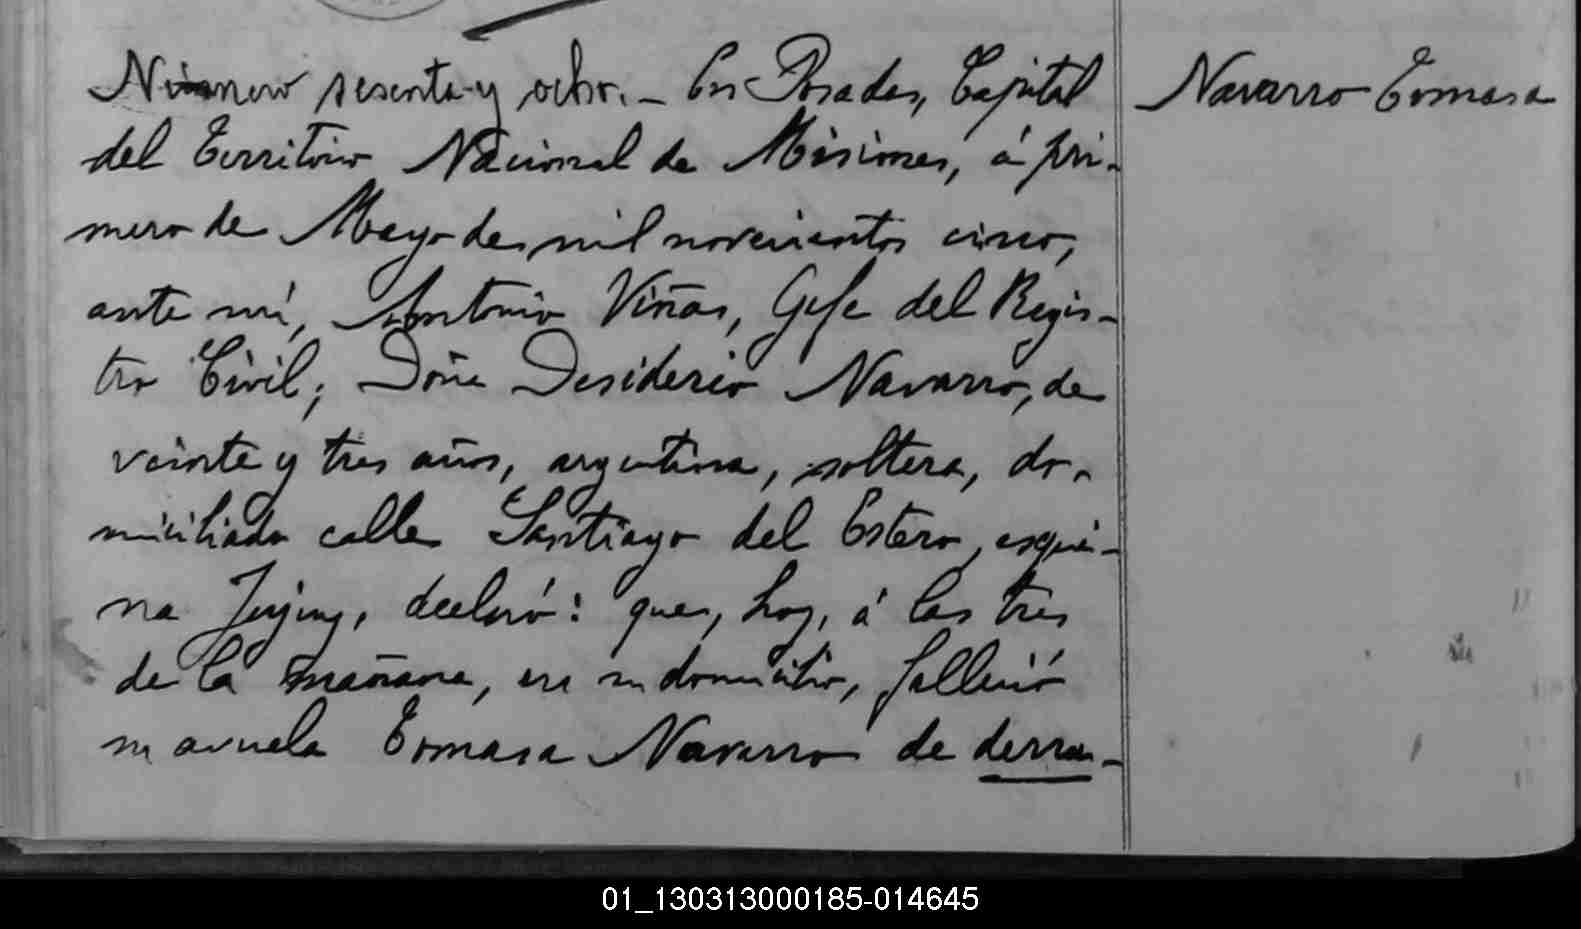 Número sesenta y ocho.- En Posadas, Capital
Navarro Tomasa
del Territorio Nacional de Misiones, á pri-
mero de Mayo de mil novecientos cinco,
ante mí, Antonio Viñas, Gefe del Regis-
tro Civil; Doña Desideria Navarro, de
veinte y tres años, argentina, soltera, do-
miciliada calle Santiago del Estero, esqui-
na Jujuy, declaró: que, hoy, á las tres
de la mañana, en su domicilio, falleció
su avuela Tomasa Navarro de derra-
01_130313000185-014645